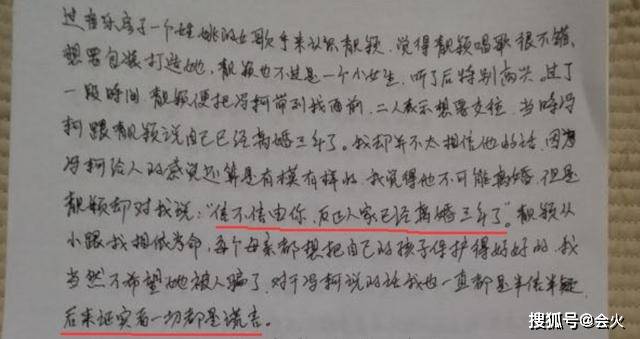 过音乐房了一个女姚的女歌手来认识靓颖，觉得靓颖唱歌很不错，
想要包装打造她，靓颖也不过是一个小女生，听了后特别高兴。过了
一段时间靓颖便把冯柯带到我面前，二人表示想要交往，当时冯
柯跟靓颖说自己已经离婚三年了。我却并不太相信他的话，因为
冯柯给人的感觉还算是有模有样的，我觉得他不可能离婚，但是
靓颖却对我说：“信不信由你，反正人家已经离婚三年了”。靓颖从
小跟我相依为命，每个母亲都想把自己的孩子保护得好好的，我
当然不希望她被人骗了，对于冯柯说的话我也一直都是半信半疑，
后来证实着一切都是谎言。
搜狐号@会火